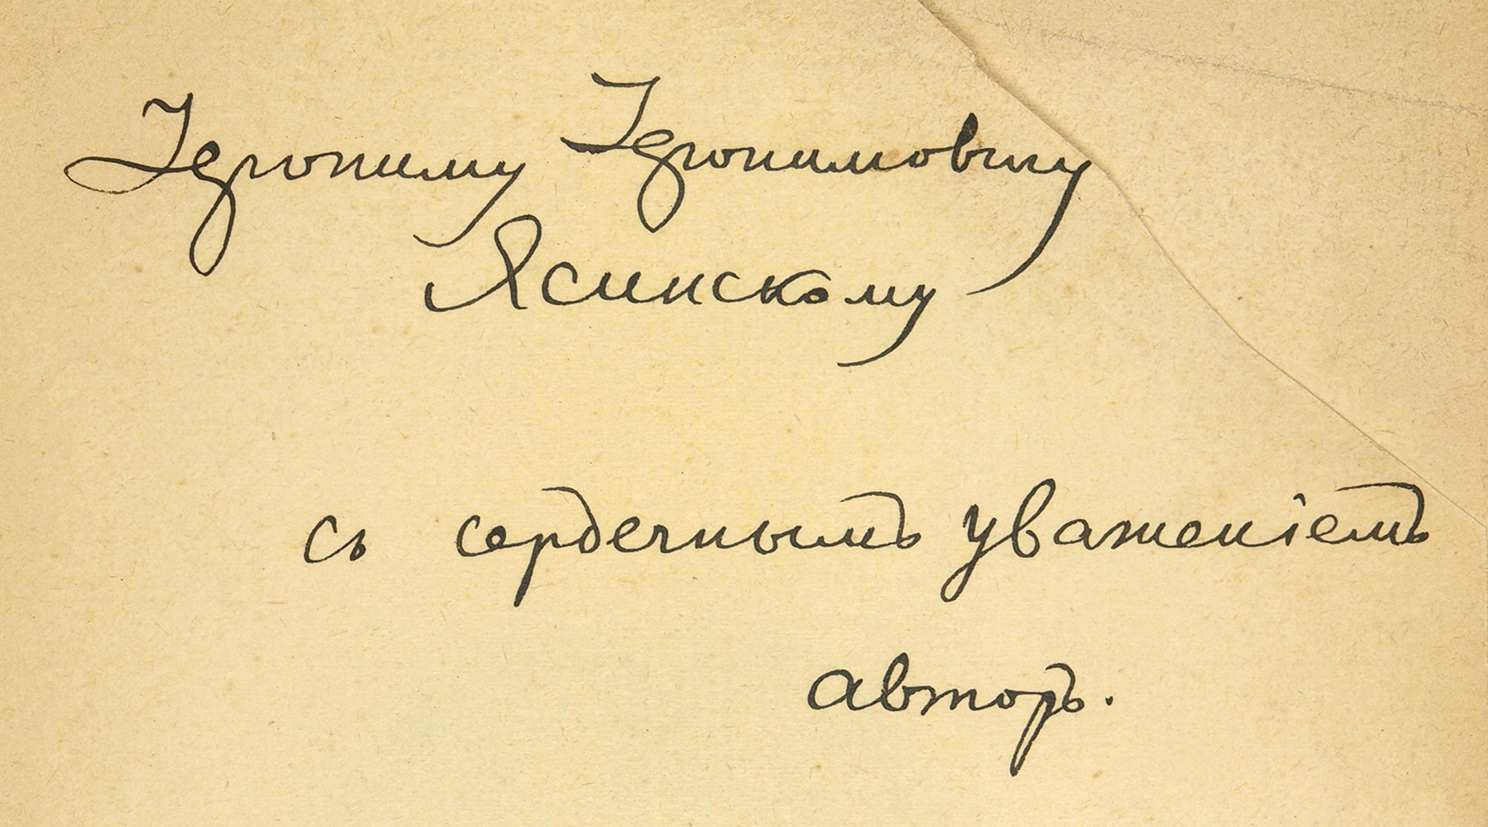 Іерониму Іеронимовичу
Ясинскому
съ сердечнымъ уваженіемъ
авторъ.